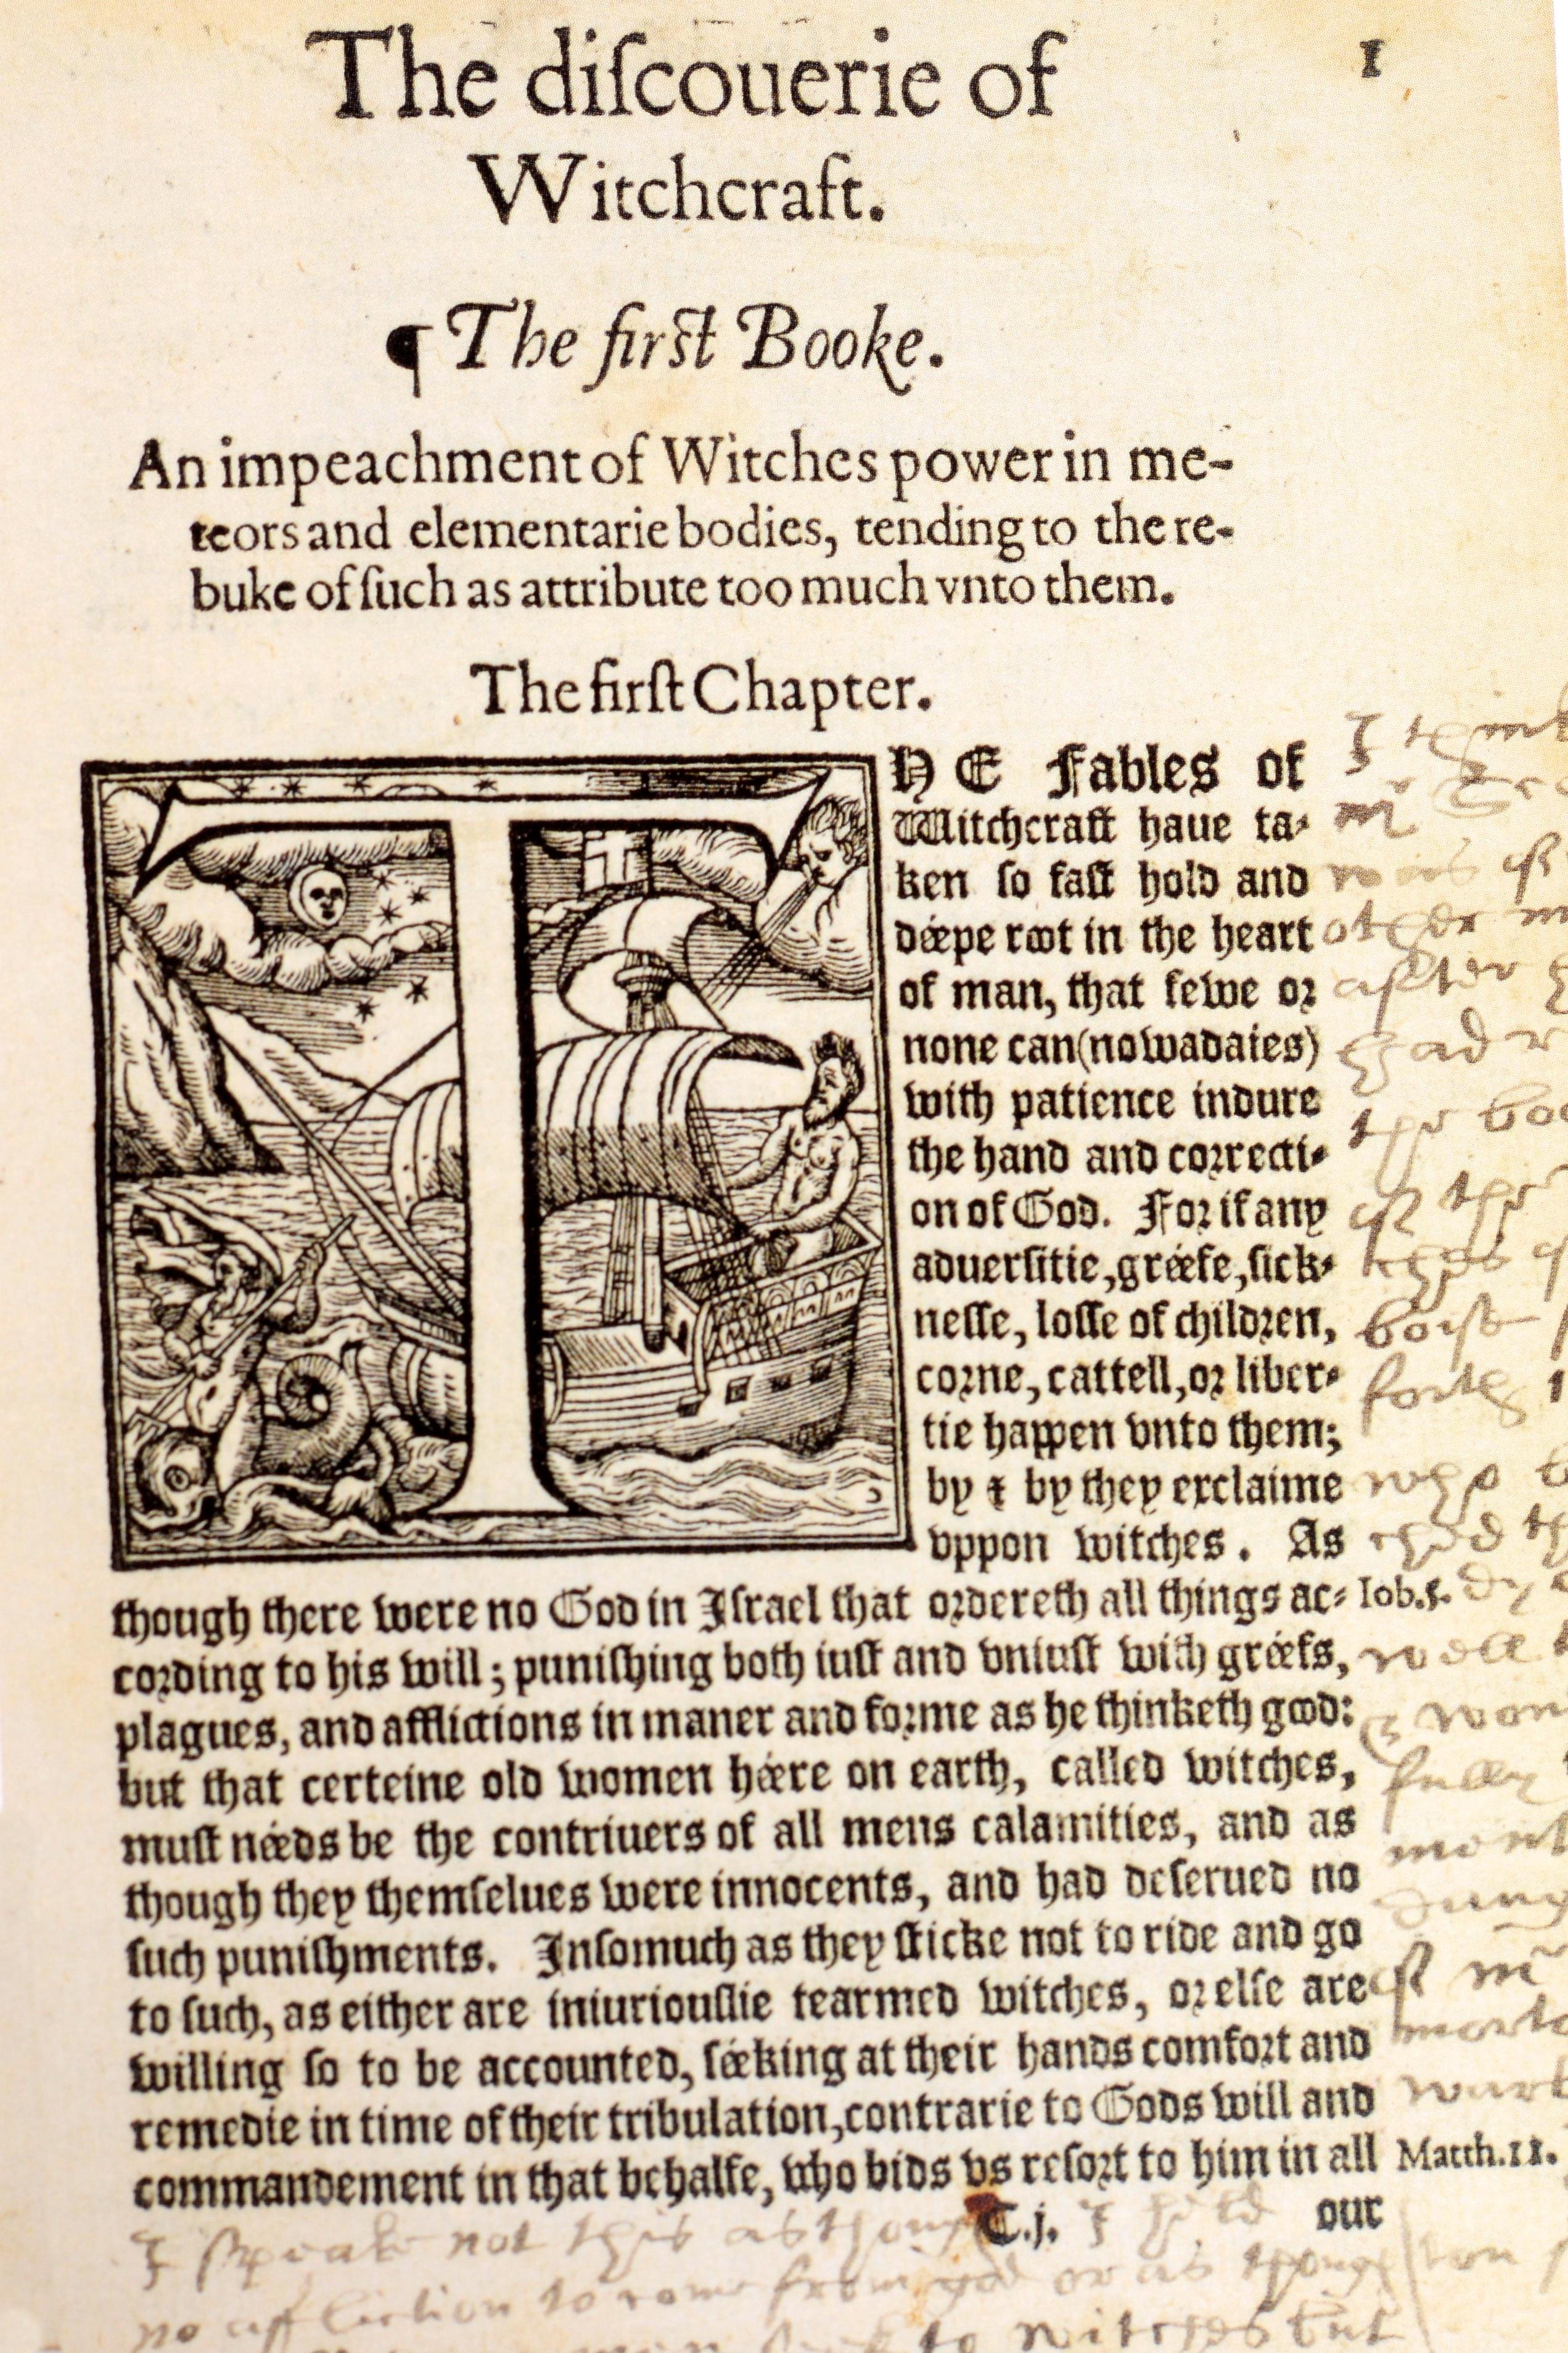 The diſcouerie of
1
Witchcraft.
¶ The firſt Booke.
An impeachment of Witches power in me-
teors and elementarie bodies, tending to the re-
buke of ſuch as attribute too much vnto them.
The firſt Chapter.
THE Fables of
Witchcraft haue ta-
ken ſo faſt hold and
déepe root in the heart
of man, that fewe or
none can (nowadaies)
with patience indure
the hand and correcti-
on of God. For if any
aduerſitie, gréefe, ſick-
neſſe, loſſe of children,
corne, cattell, or liber-
tie happen vnto them;
by & by they exclaime
vppon witches. As
though there were no God in Iſrael that ordereth all things ac-
Iob.5.
cording to his will; puniſhing both iuſt and vniuſt with gréefs,
plagues, and afflictions in maner and forme as he thinketh good:
but that certeine old women héere on earth, called witches,
muſt néeds be the contriuers of all mens calamities, and as
though they themſelues were innocents, and had deſerued no
ſuch puniſhments. Inſomuch as they ſticke not to ride and go
to ſuch, as either are iniuriouſlie tearmed witches, or elſe are
willing ſo to be accounted, ſéeking at their hands comfort and
remedie in time of their tribulation, contrarie to Gods will and
commandement in that behalfe, who bids vs reſort to him in all
Matth.11.
C.j.
our
I speake not this as though I held
no affliction to come from god or as though
to witches but